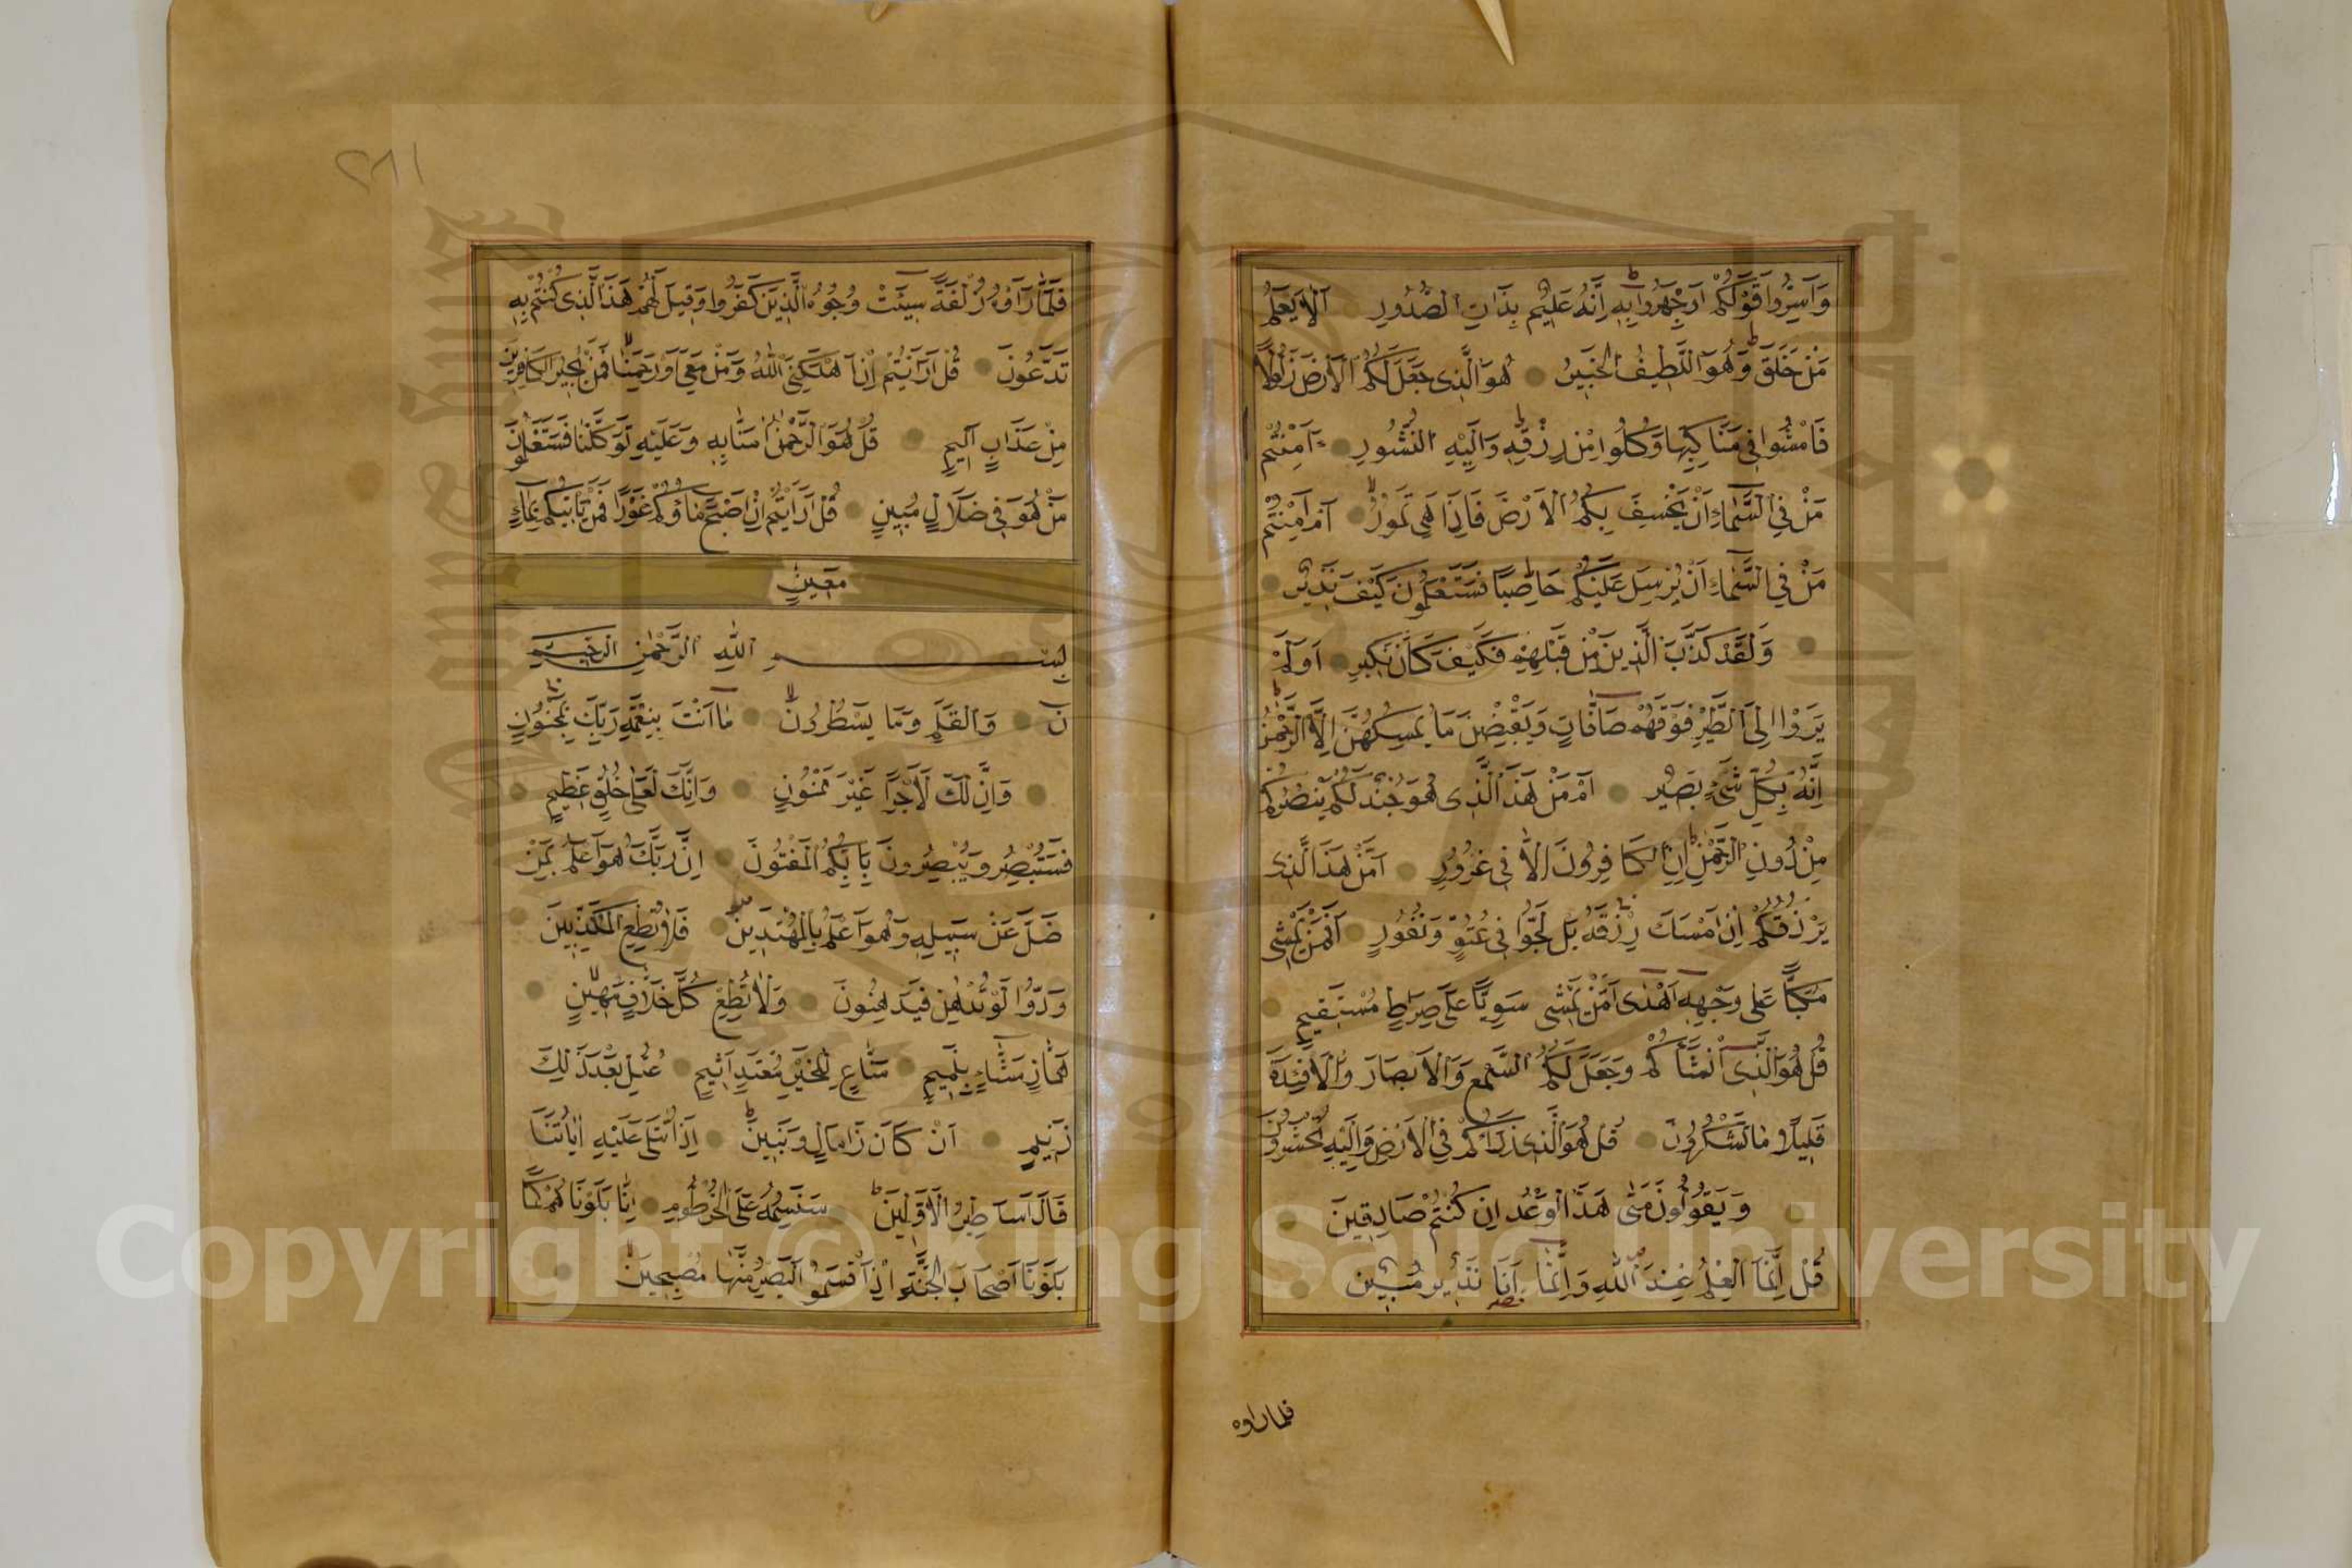 وَاَسِرُّوا قَوْلَكُمْ اَوِ اجْهَرُوا بِهِ اِنَّهُ عَلِيمٌ بِذَاتِ الصُّدُورِ اَلَا يَعْلَمُ
مَنْ خَلَقَ وَهُوَ اللَّطِيفُ الْخَبِيرُ هُوَ الَّذِى جَعَلَ لَكُمُ الْاَرْضَ ذَلُولًا
فَامْشُوا فِى مَنَاكِبِهَا وَكُلُوا مِنْ رِزْقِهِ وَاِلَيْهِ النُّشُورِ ءَاَمِنْتُمْ
مَنْ فِى السَّمَاءِ اَنْ يَخْسِفَ بِكُمُ الْاَرْضَ فَاِذَا هِىَ تَمُورُ اَمْ اَمِنْتُمْ
مَنْ فِى السَّمَاءِ اَنْ يُرْسِلَ عَلَيْكُمْ حَاصِبًا فَسَتَعْلَمُونَ كَيْفَ نَذِيرِ
وَلَقَدْ كَذَّبَ الَّذِينَ مِنْ قَبْلِهِمْ فَكَيْفَ كَانَ نَكِيرِ اَوَلَمْ
يَرَوْا اِلَى الطَّيْرِ فَوْقَهُمْ صَافَّاتٍ وَيَقْبِضْنَ مَا يُمْسِكُهُنَّ اِلَّا الرَّحْمٰنُ
اِنَّهُ بِكُلِّ شَىْءٍ بَصِيرٌ اَمْ مَنْ هَذَا الَّذِى هُوَ جُنْدٌ لَكُمْ يَنْصُرُكُمْ
مِنْ دُونِ الرَّحْمٰنِ اِنِ الْكَافِرُونَ اِلَّا فِى غُرُورٍ اَمَّنْ هَذَا الَّذِى
يَرْزُقُكُمْ اِنْ اَمْسَكَ رِزْقَهُ بَلْ لَجُّوا فِى عُتُوٍّ وَنُفُورٍ اَفَمَنْ يَمْشِى
مُكِبًّا عَلَى وَجْهِهِ اَهْدٰى اَمَّنْ يَمْشِى سَوِيًّا عَلَى صِرَاطٍ مُسْتَقِيمٍ
قُلْ هُوَ الَّذِى اَنْشَاَكُمْ وَجَعَلَ لَكُمُ السَّمْعَ وَالْاَبْصَارَ وَالْاَفْئِدَةَ
قَلِيلًا مَا تَشْكُرُونَ قُلْ هُوَ الَّذِى ذَرَاَكُمْ فِى الْاَرْضِ وَاِلَيْهِ تُحْشَرُونَ
وَيَقُولُونَ مَتٰى هَذَا الْوَعْدُ اِنْ كُنْتُمْ صَادِقِينَ
قُلْ اِنَّمَا الْعِلْمُ عِنْدَ اللّٰهِ وَاِنَّمَا اَنَا نَذِيرٌ مُبِينٌ
فلما راوه
٢٨١
فَلَمَّا رَاَوْهُ زُلْفَةً سِيئَتْ وُجُوهُ الَّذِينَ كَفَرُوا وَقِيلَ لَهُمْ هَذَا الَّذِى كُنْتُمْ بِهِ
تَدَّعُونَ قُلْ اَرَاَيْتُمْ اِنْ اَهْلَكَنِىَ اللّٰهُ وَمَنْ مَعِىَ اَوْ رَحِمَنَا فَمَنْ يُجِيرُ الْكَافِرِينَ
مِنْ عَذَابٍ اَلِيمٍ قُلْ هُوَ الرَّحْمٰنُ اٰمَنَّا بِهِ وَعَلَيْهِ تَوَكَّلْنَا فَسَتَعْلَمُونَ
مَنْ هُوَ فِى ضَلَالٍ مُبِينٍ قُلْ اَرَاَيْتُمْ اِنْ اَصْبَحَ مَاؤُكُمْ غَوْرًا فَمَنْ يَاْتِيكُمْ بِمَاءٍ
مَعِينٍ
بِسْمِ اللّٰهِ الرَّحْمٰنِ الرَّحِيمِ
نٓ وَالْقَلَمِ وَمَا يَسْطُرُونَ مَا اَنْتَ بِنِعْمَةِ رَبِّكَ بِمَجْنُونٍ
وَاِنَّ لَكَ لَاَجْرًا غَيْرَ مَمْنُونٍ وَاِنَّكَ لَعَلٰى خُلُقٍ عَظِيمٍ
فَسَتُبْصِرُ وَيُبْصِرُونَ بِاَيِّكُمُ الْمَفْتُونَ اِنَّ رَبَّكَ هُوَ اَعْلَمُ بِمَنْ
ضَلَّ عَنْ سَبِيلِهِ وَهُوَ اَعْلَمُ بِالْمُهْتَدِينَ فَلَا تُطِعِ الْمُكَذِّبِينَ
وَدُّوا لَوْ تُدْهِنُ فَيُدْهِنُونَ وَلَا تُطِعْ كُلَّ حَلَّافٍ مَهِينٍ
هَمَّازٍ مَشَّاءٍ بِنَمِيمٍ مَنَّاعٍ لِلْخَيْرِ مُعْتَدٍ اَثِيمٍ عُتُلٍّ بَعْدَ ذَلِكَ
زَنِيمٍ اَنْ كَانَ ذَا مَالٍ وَبَنِينَ اِذَا تُتْلَى عَلَيْهِ اٰيَاتُنَا
قَالَ اَسَاطِيرُ الْاَوَّلِينَ سَنَسِمُهُ عَلَى الْخُرْطُومِ اِنَّا بَلَوْنَاهُمْ كَمَا
بَلَوْنَا اَصْحَابَ الْجَنَّةِ اِذْ اَقْسَمُوا لَيَصْرِمُنَّهَا مُصْبِحِينَ
Copyright © King Saud University